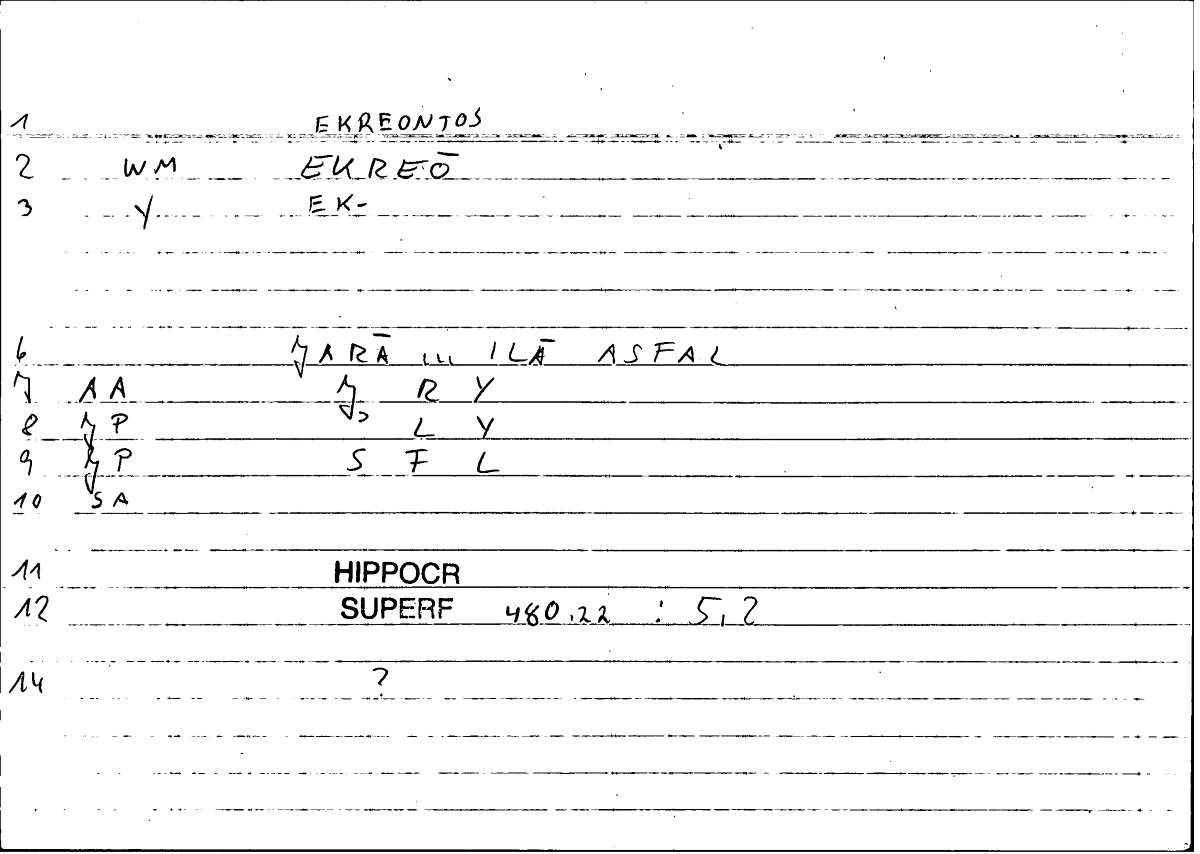 1 EKREONTOS
2 WM EKREŌ
3 Y EK-
6 ʒARĀ ... ILĀ ASFAL
7 AA ʒ, R Y
8 ʒP L Y
9 ʒP S F L
10 SA
11 HIPPOCR
12 SUPERF 480,22 : 5,2
14 ?